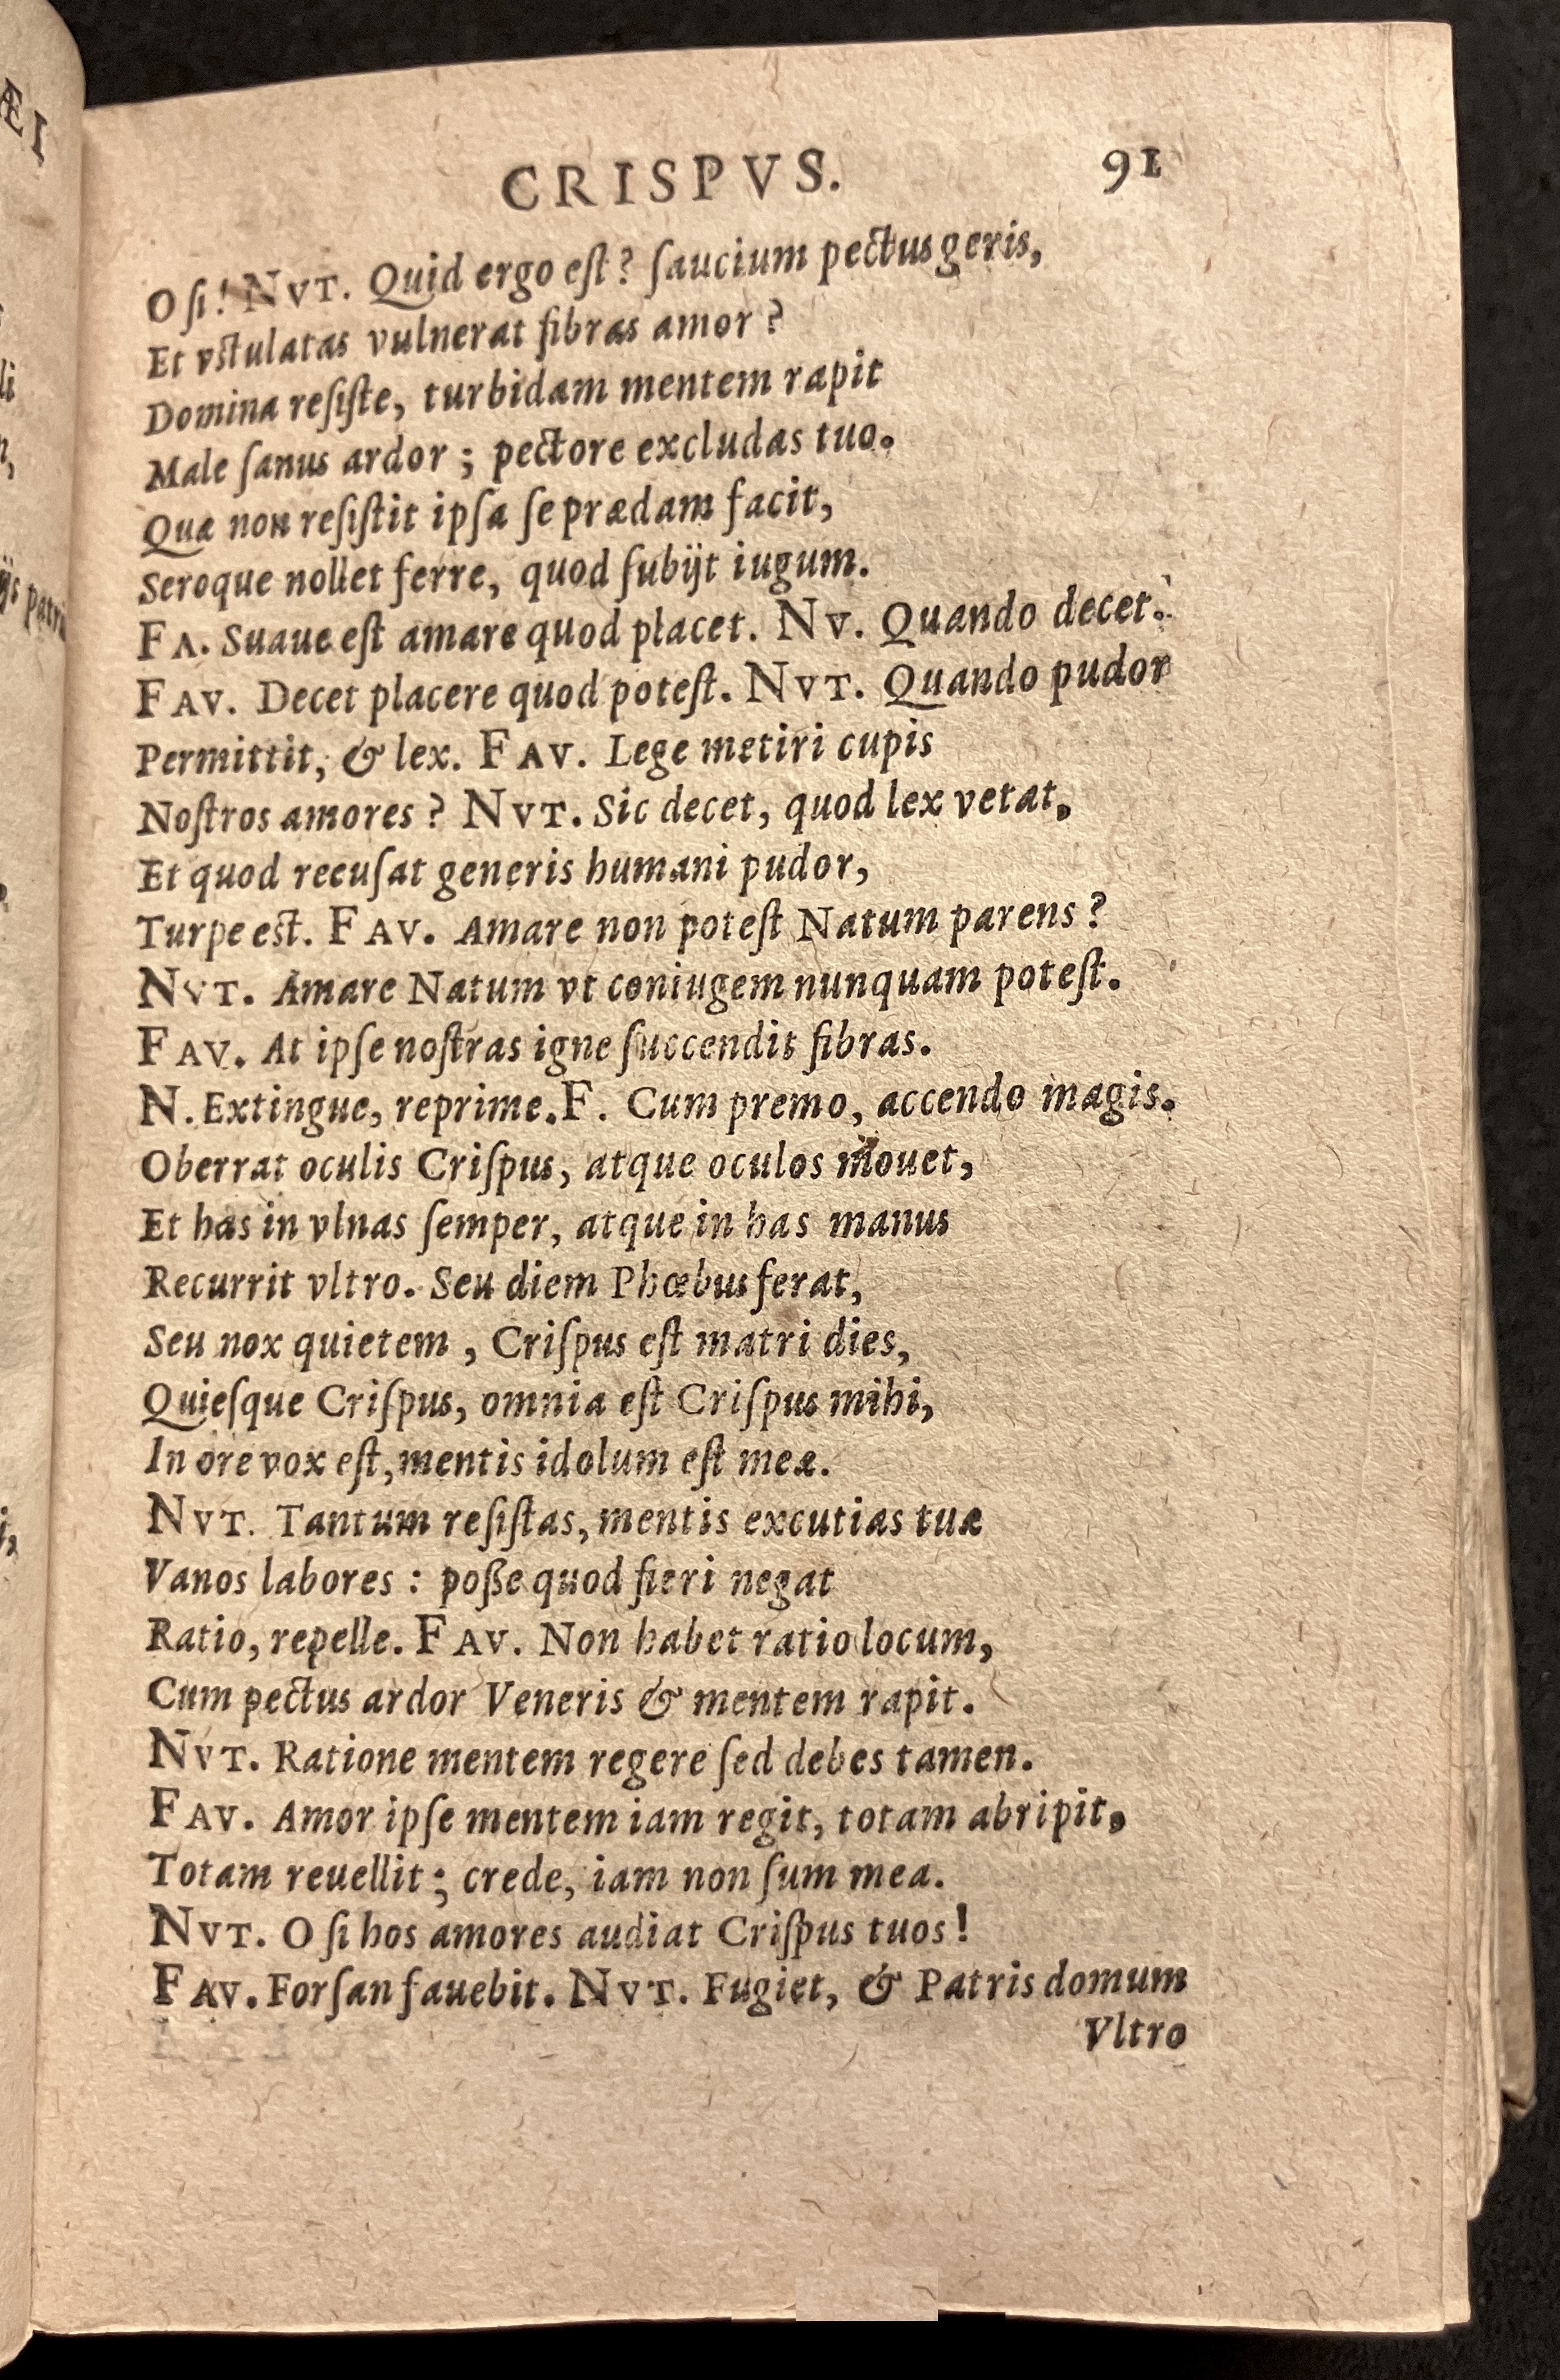 CRISPVS. 91
O ſi! NVT. Quid ergo eſt? ſaucium pectus geris,
Et vſtulatas vulnerat fibras amor?
Domina reſiſte, turbidam mentem rapit
Male ſanus ardor; pectore excludas tuo.
Quæ non reſiſtit ipſa ſe prædam facit,
Seroque nollet ferre, quod ſubijt iugum.
FA. Suaue eſt amare quod placet. NV. Quando decet.
FAV. Decet placere quod poteſt. NVT. Quando pudor
Permittit, & lex. FAV. Lege metiri cupis
Noſtros amores? NVT. Sic decet, quod lex vetat,
Et quod recuſat generis humani pudor,
Turpe eſt. FAV. Amare non poteſt Natum parens?
NVT. Amare Natum vt coniugem nunquam poteſt.
FAV. At ipſe noſtras igne ſuccendit fibras.
N. Extingue, reprime. F. Cum premo, accendo magis.
Oberrat oculis Criſpus, atque oculos mouet,
Et has in vlnas ſemper, atque in has manus
Recurrit vltro. Seu diem Phœbus ferat,
Seu nox quietem, Criſpus eſt matri dies,
Quieſque Criſpus, omnia eſt Criſpus mihi,
In ore vox eſt, mentis idolum eſt meæ.
NVT. Tantum reſiſtas, mentis excutias tuæ
Vanos labores: poße quod fieri negat
Ratio, repelle. FAV. Non habet ratio locum,
Cum pectus ardor Veneris & mentem rapit.
NVT. Ratione mentem regere ſed debes tamen.
FAV. Amor ipſe mentem iam regit, totam abripit,
Totam reuellit; crede, iam non ſum mea.
NVT. O ſi hos amores audiat Criſpus tuos!
FAV. Forſan fauebit. NVT. Fugiet, & Patris domum
Vltro